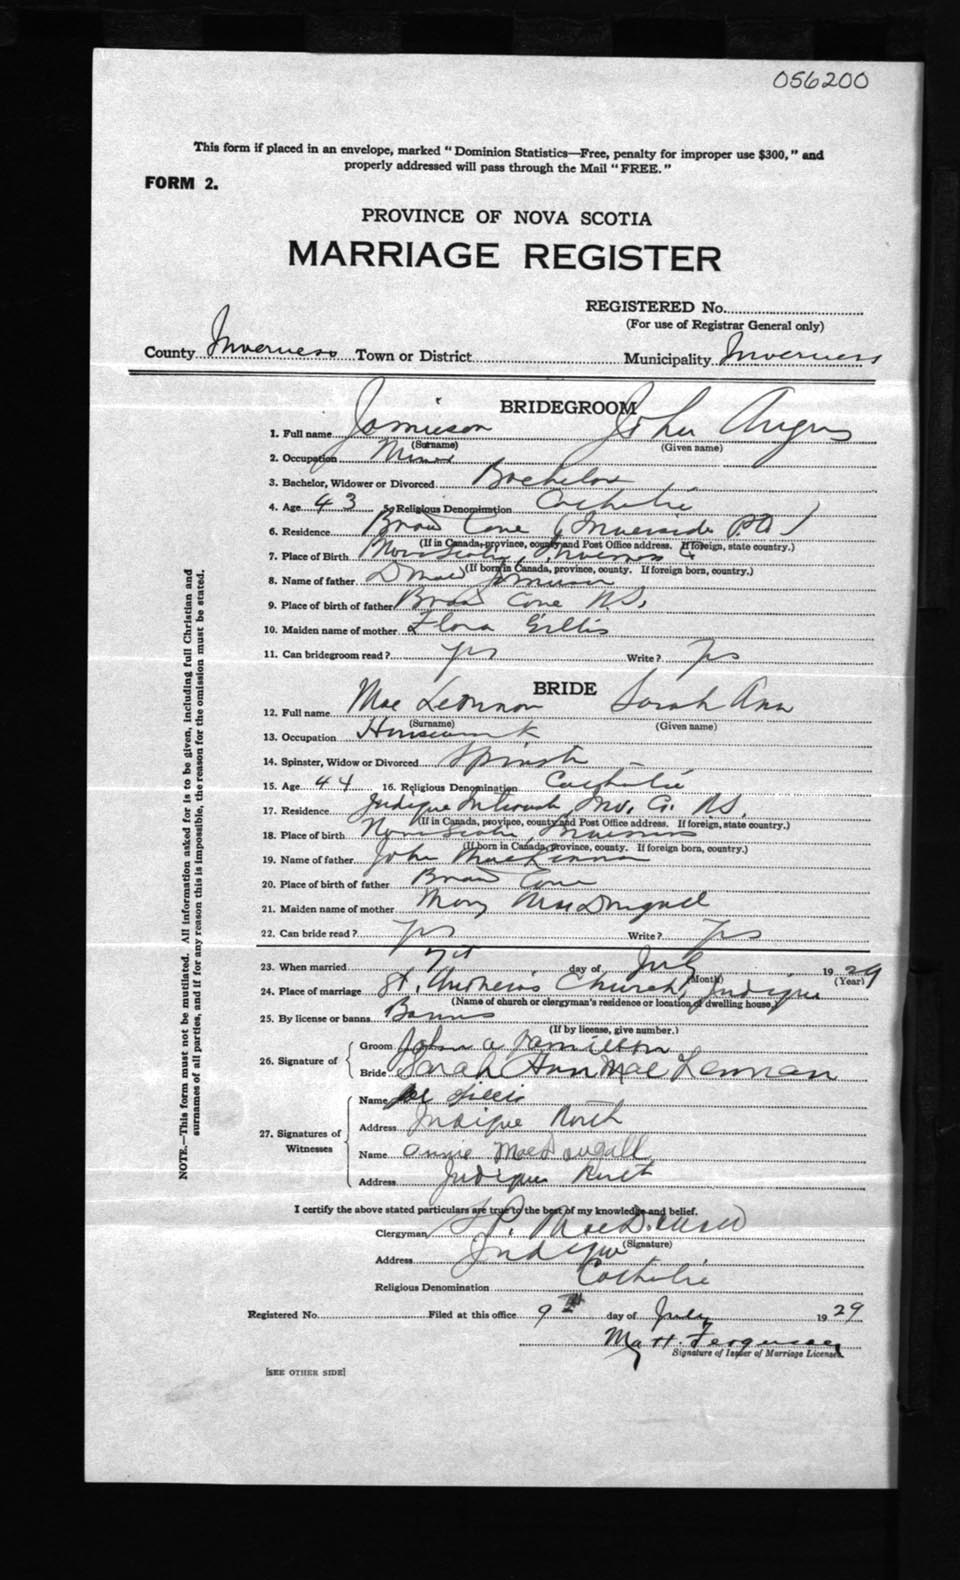 056200
This form if placed in an envelope, marked "Dominion Statistics—Free, penalty for improper use $300," and
properly addressed will pass through the Mail "FREE."
FORM 2.
PROVINCE OF NOVA SCOTIA
MARRIAGE REGISTER
REGISTERED No.
(For use of Registrar General only)
County Inverness Town or District Municipality Inverness
BRIDEGROOM
1. Full name Jamieson John Angus
(Surname) (Given name)
2. Occupation Miner
3. Bachelor, Widower or Divorced Bachelor
4. Age 43 5. Religious Denomination Catholic
6. Residence Broad Cove (Inverside P.O.)
(If in Canada, province, county and Post Office address. If foreign, state country.)
7. Place of Birth Nova Scotia, Inverness C
(If born in Canada, province, county. If foreign born, country.)
8. Name of father Donald Jamieson
9. Place of birth of father Broad Cove N.S.
10. Maiden name of mother Flora Gillis
11. Can bridegroom read? yes Write? yes
BRIDE
12. Full name Mac Lennan Sarah Ann
(Surname) (Given name)
13. Occupation Housework
14. Spinster, Widow or Divorced Spinster
15. Age 44 16. Religious Denomination Catholic
17. Residence Judique Inv. N.S.
(If in Canada, province, county and Post Office address. If foreign, state country.)
18. Place of birth Nova Scotia, Inverness
(If born in Canada, province, county. If foreign born, country.)
19. Name of father John MacLennan
20. Place of birth of father Broad Cove
21. Maiden name of mother Mary MacDougall
22. Can bride read? yes Write? yes
23. When married day of July 1929
(Month) (Year)
24. Place of marriage St. Andrew's Church, Judique
(Name of church or clergyman's residence or location of dwelling house.)
25. By license or banns Banns
(If by license, give number.)
26. Signature of Groom John A
Bride Sarah Ann Mac Lennan
27. Signatures of Witnesses
Name Gillis
Address Judique North
Name Annie MacDougall
Address Judique North
I certify the above stated particulars are true to the best of my knowledge and belief.
Clergyman MacDonald
(Signature)
Address Judique
Religious Denomination Catholic
Registered No. Filed at this office 9th day of July 1929
Matt. Ferguson
Signature of Issuer of Marriage Licenses
[SEE OTHER SIDE]
NOTE.—This form must not be mutilated. All information asked for is to be given, including full Christian and
surnames of all parties, and if for any reason this is impossible, the reason for the omission must be stated.